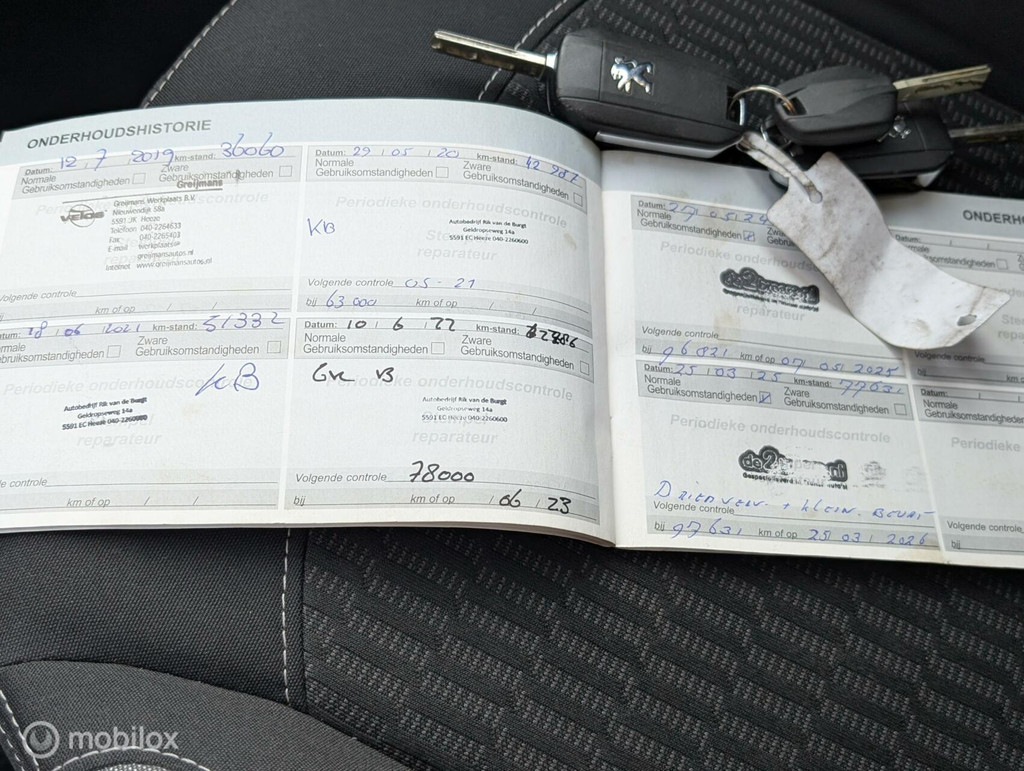 ONDERHOUDSHISTORIE
Datum: 12 , 7 , 2019 km-stand: 36060
Normale
Gebruiksomstandigheden
Zware
Gebruiksomstandigheden
Greijmans
VELOS
Greijmans Werkplaats B.V.
Nieuwendijk 58a
5591 JK Heeze
Telefoon 040-2264633
Fax 040-2265403
E-mail werkplaats@
greijmansautos.nl
Internet www.greijmansautos.nl
Volgende controle
km of op / /
Datum: 29 / 05 / 20 km-stand: 42 987
Normale
Gebruiksomstandigheden
Zware
Gebruiksomstandigheden
Periodieke onderhoudscontrole
KB
Autobedrijf Rik van de Burgt
Geldropseweg 14a
5591 EC Heeze 040-2260600
reparateur
Volgende controle 05 - 21
bij 63 000 km of op / /
atum: 18 / 06 / 2021 km-stand: 51332
rmale
Gebruiksomstandigheden
Zware
Gebruiksomstandigheden
Periodieke onderhoudscontrole
KB
Autobedrijf Rik van de Burgt
Geldropseweg 14a
5591 EC Heeze 040-2260600
reparateur
de controle
km of op / /
Datum: 10 / 6 / 22 km-stand:
Normale
Gebruiksomstandigheden
Zware
Gebruiksomstandigheden
Periodieke onderhoudscontrole
VB
Autobedrijf Rik van de Burgt
Geldropseweg 14a
5591 EC Heeze 040-2260600
reparateur
Volgende controle 78000
bij km of op / 06 / 23
ONDERHO
Datum: 27 05 24
Normale
Gebruiksomstandigheden
Periodieke onderhouds
reparateur
Volgende controle
bij 96821 km of op 07 / 05 / 2025
Datum: 25 / 03 / 25 km-stand: 77631
Normale
Gebruiksomstandigheden
Zware
Gebruiksomstandigheden
Periodieke onderhoudscontrole
klein. BEURT
Volgende controle
bij 97631 km of op 25 / 03 / 2026
Volgende controle
bij
Datum:
Normale
Gebruiksomstandigheden
Periodieke
Volgende controle
bij
mobilox